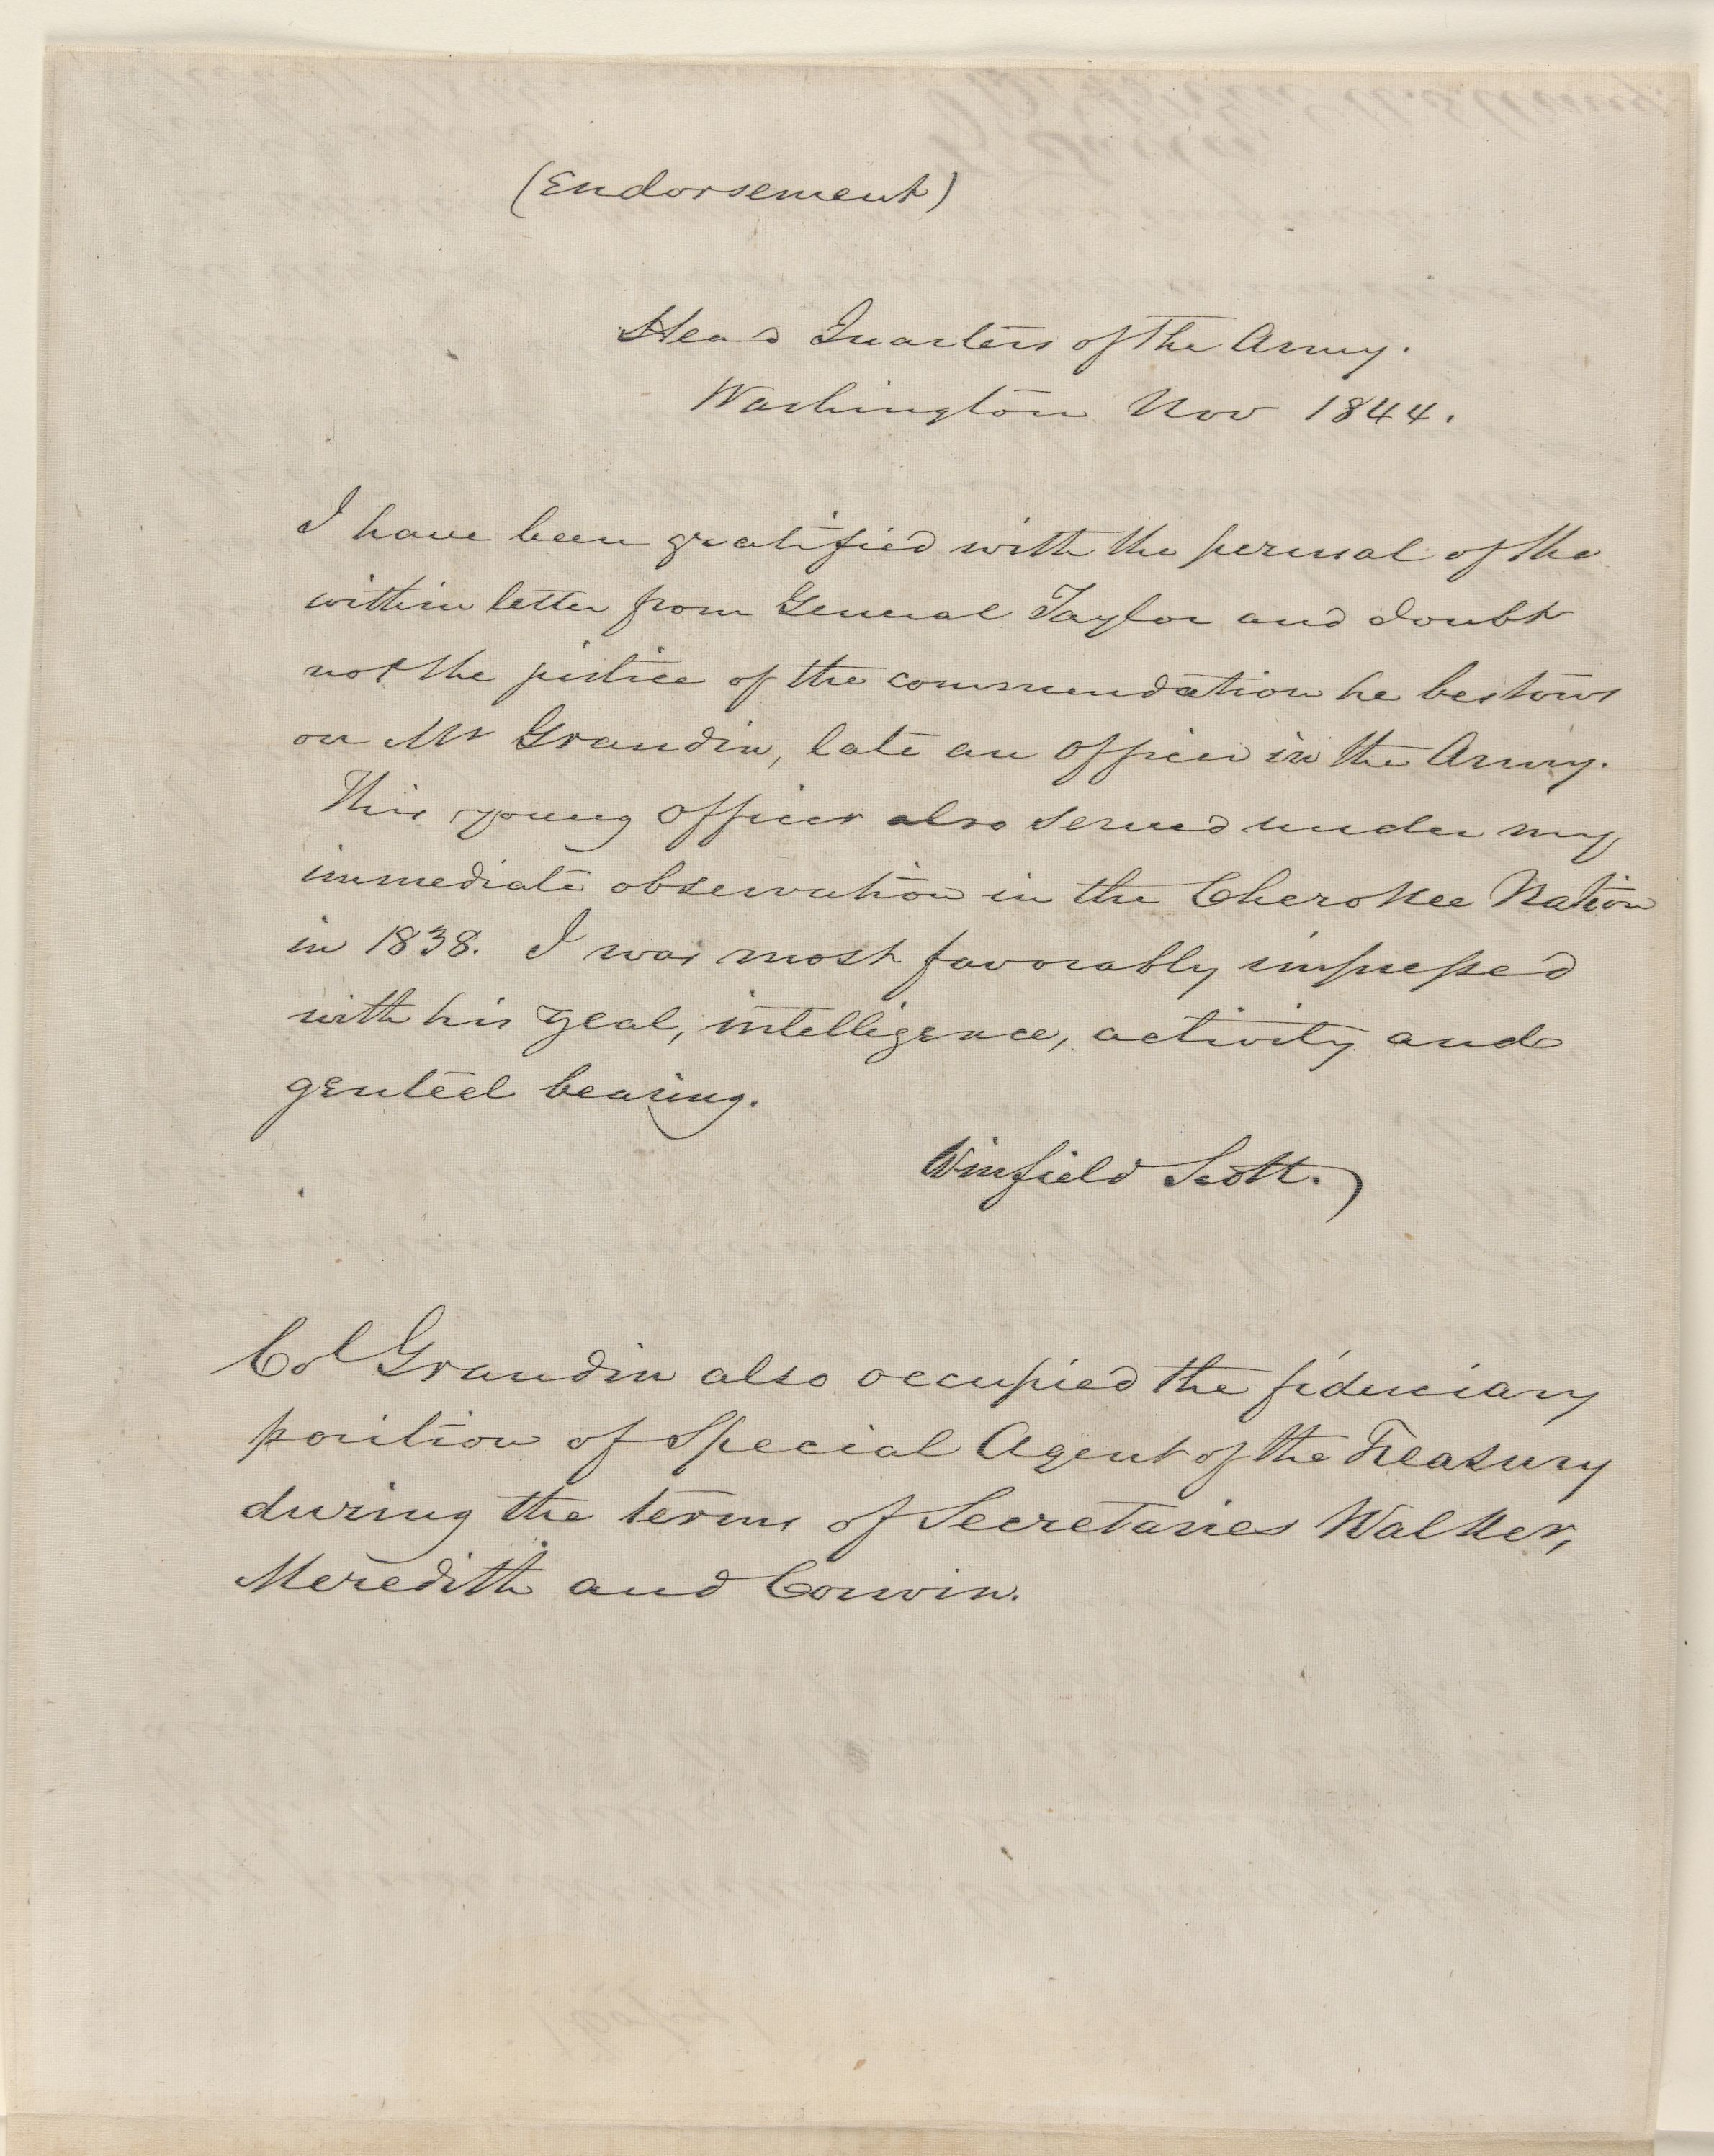 (Endorsement)
Head Quarters of the Army.
Washington Nov 1844.
I have been gratified with the perusal of the
within letter from General Taylor and doubt
not the justice of the commendation he bestows
on Mr Grandin, late an officer in the Army.
This young officer also served under my
immediate observation in the Cherokee Nation
in 1838. I was most favorably impressed
with his zeal, intelligence, activity and
genteel bearing.
Winfield Scott.
Col Grandin also occupied the fiduciary
position of Special Agent of the Treasury
during the terms of Secretaries Walker,
Meredith and Corwin.